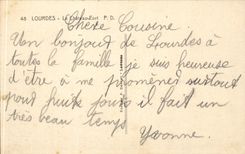 48 LOURDES. - Le Château-Fort P. D.
Chère Cousine
Un bonjour de Lourdes à
toutes la famille je suis heureuse
d'être à me promènes surtout
pour huite jours il fait un
très beau temps
Yvonne.